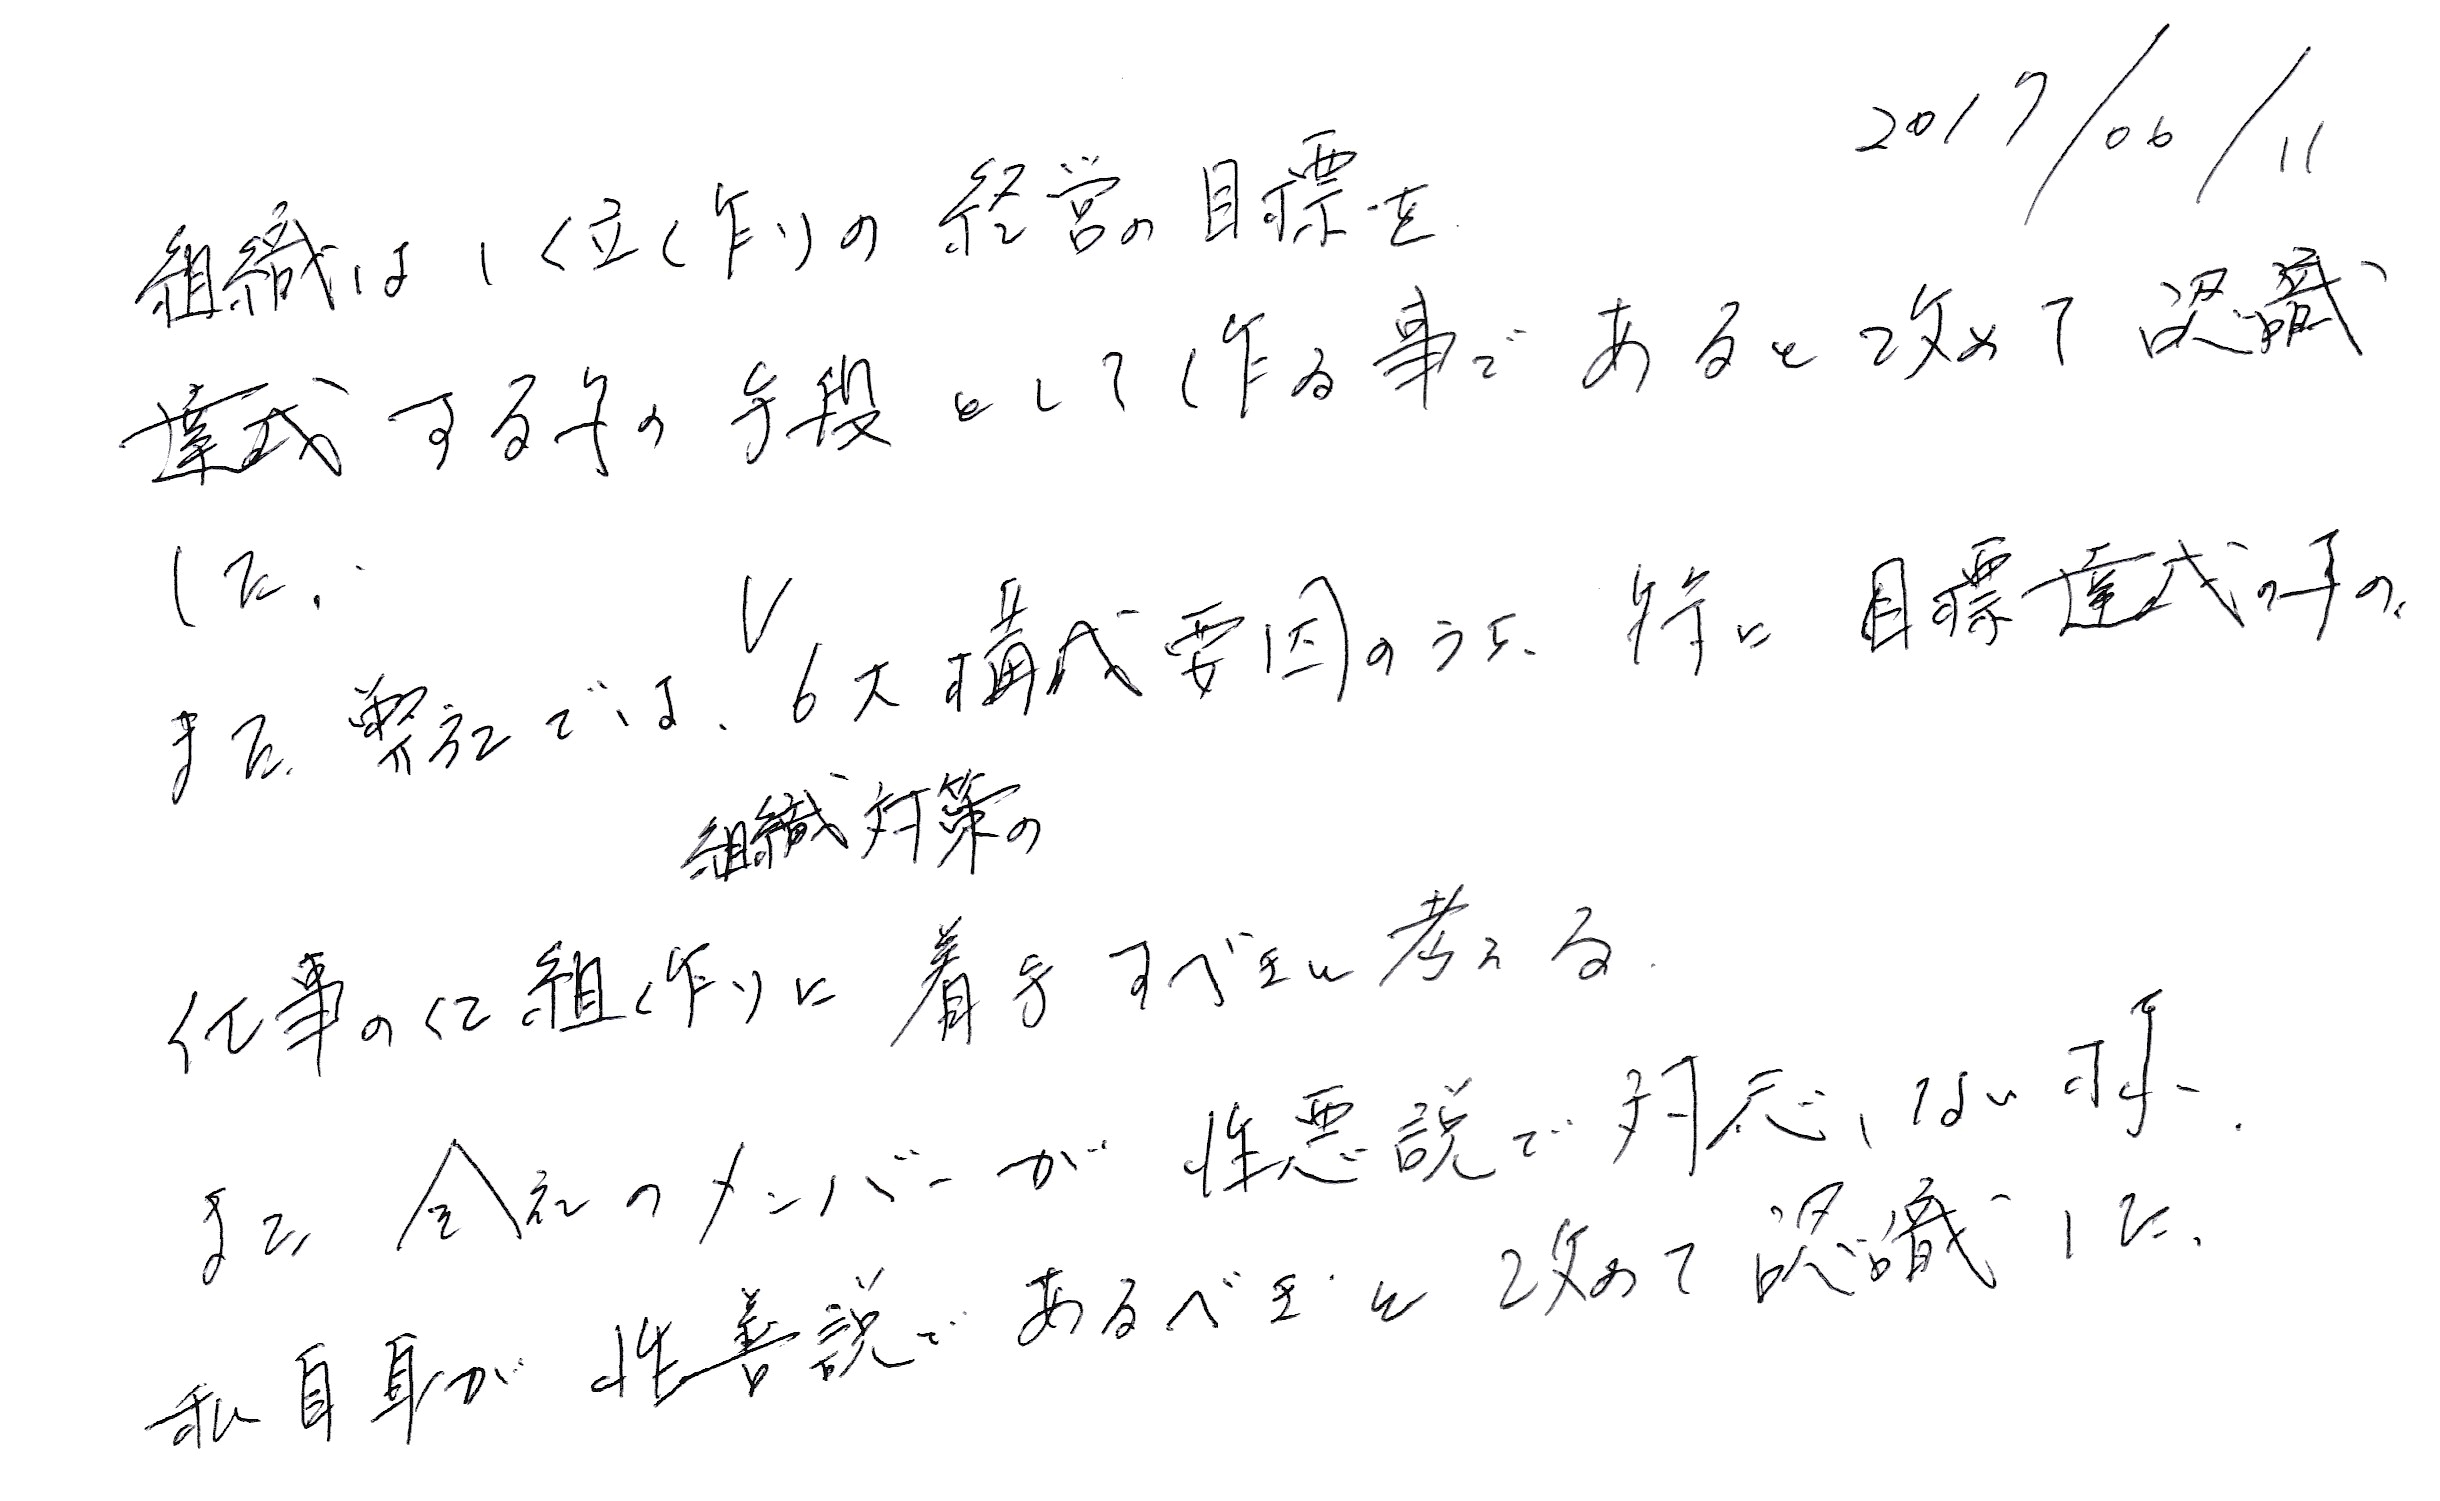 2017/06/11
組織は 位作りの 経営の 目標を
達成する 手段として 作る事で あると 改めて 認識
した.
また、弊社では、6大構成要因のうち、特に 目標達成の
組織対策の
仕事の仕組作りに 着手すべきと 考える.
また、会社のメンバーが 性悪説で対応しない様、
私自身が 性善説であるべきと 改めて認識した.